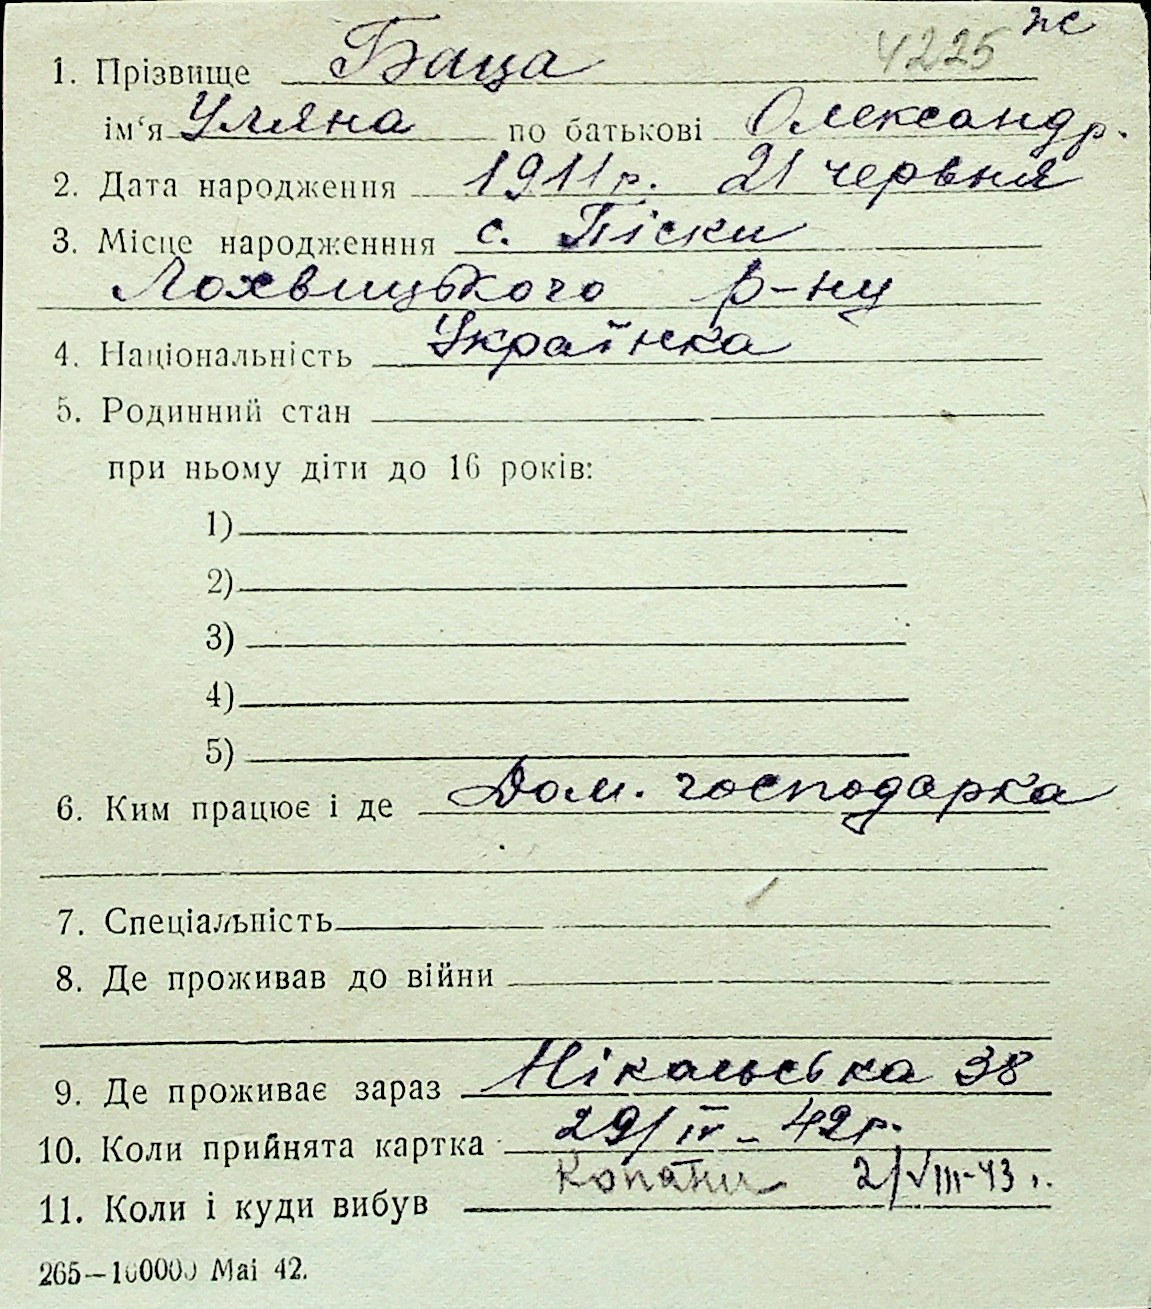 4225 пс
1. Прізвище Баца
ім‘я Уляна по батькові Олександр.
2. Дата народження 1911 р. 21 червня
3. Місце народженння с. Піски
Лохвицького р-ну
4. Національність Українка
5. Родинний стан
при ньому діти до 16 років:
1)
2)
3)
4)
5)
6. Ким працює і де Дом. господарка
7. Спеціальність
8. Де проживав до війни
9. Де проживає зараз Нікольська 38
10. Коли прийнята картка 29/IV - 42 р.
Копани 2/VIII-43 г.
11. Коли і куди вибув
265—100000 Mai 42.